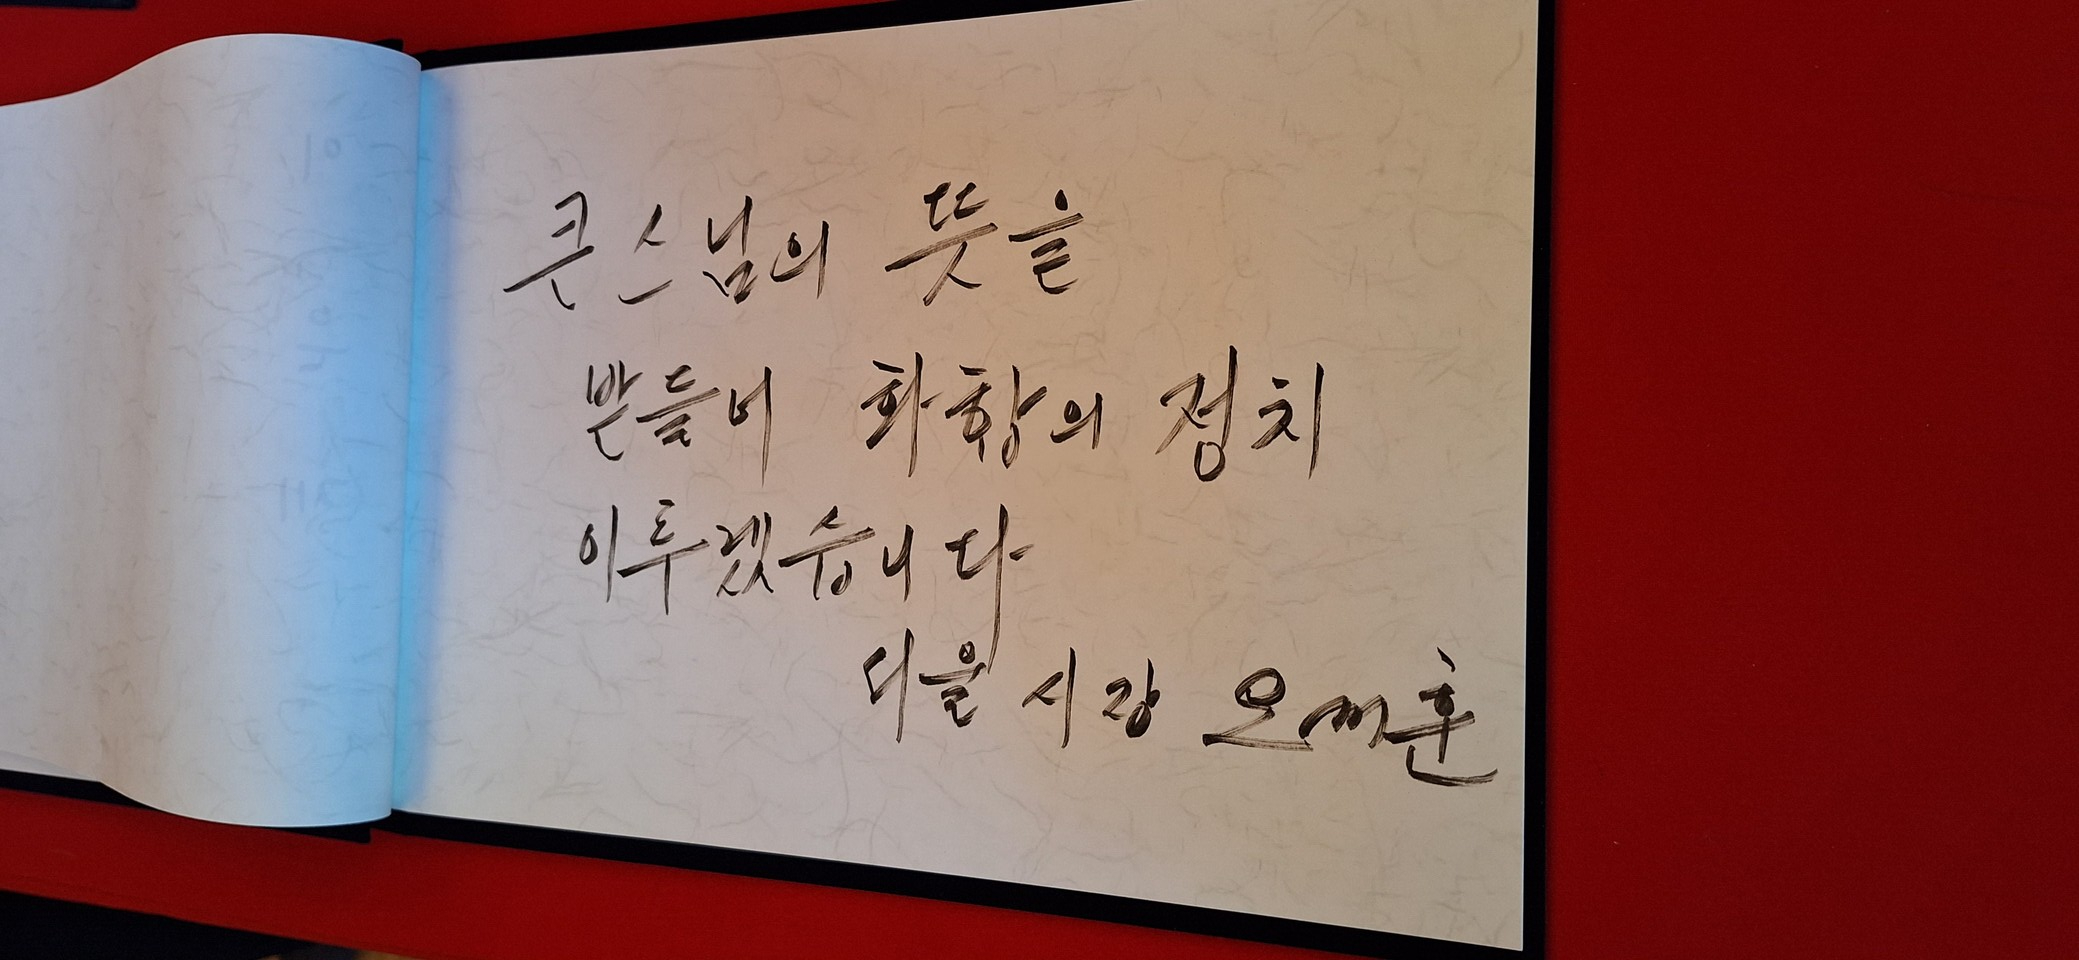 큰스님의 뜻을
받들어 화합의 정치
이루겠습니다
서울시장 오세훈